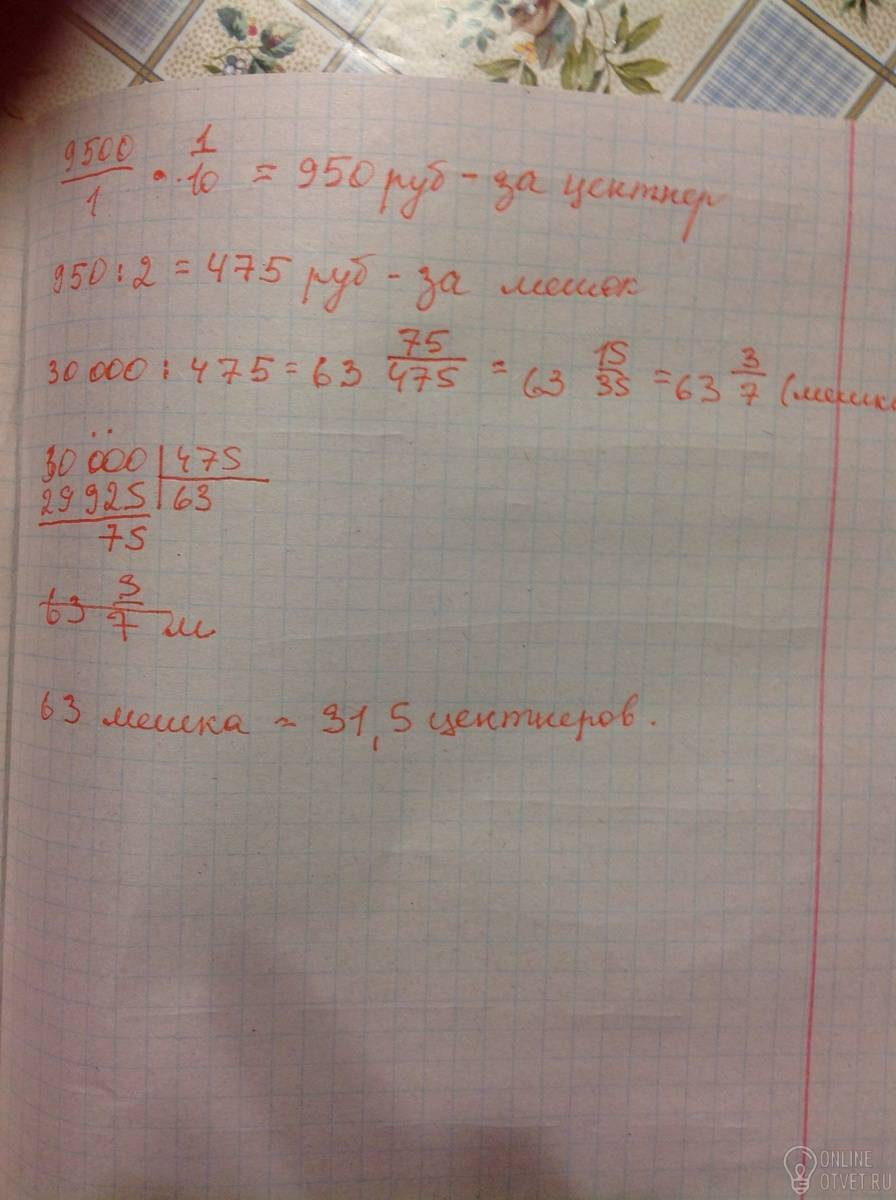 9500/1 · 1/10 = 950 руб - за центнер
950 : 2 = 475 руб - за мешок
30 000 : 475 = 63 75/475 = 63 15/35 = 63 3/7 (мешка
30 000 | 475
29 925 | 63
75
63 3/7 м
63 мешка ~ 31,5 центнеров.
ONLINE
OTVET.RU